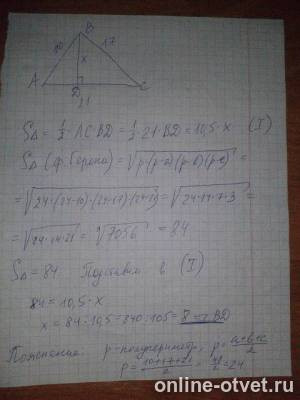 B
10
17
x
A
D
C
21
S△ = 1/2 · AC · BD = 1/2 · 21 · BD = 10,5 · x (I)
S△ (ф. Герона) = √p(p-a)(p-b)(p-c) =
= √24·(24-10)(24-17)(24-21) = √24·14·7·3 =
= √24·14·21 = √7056 = 84
S△ = 84 Подставим в (I)
84 = 10,5 · x
x = 84 : 10,5 = 840 : 105 = 8 = BD
Пояснение: p - полупериметр, p = a+b+c/2
p = 10+17+21/2 = 48/2 = 24
online-otvet.ru